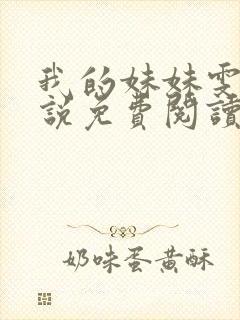 我的妹妹雯
説免費閱讀
奶味蛋黃酥